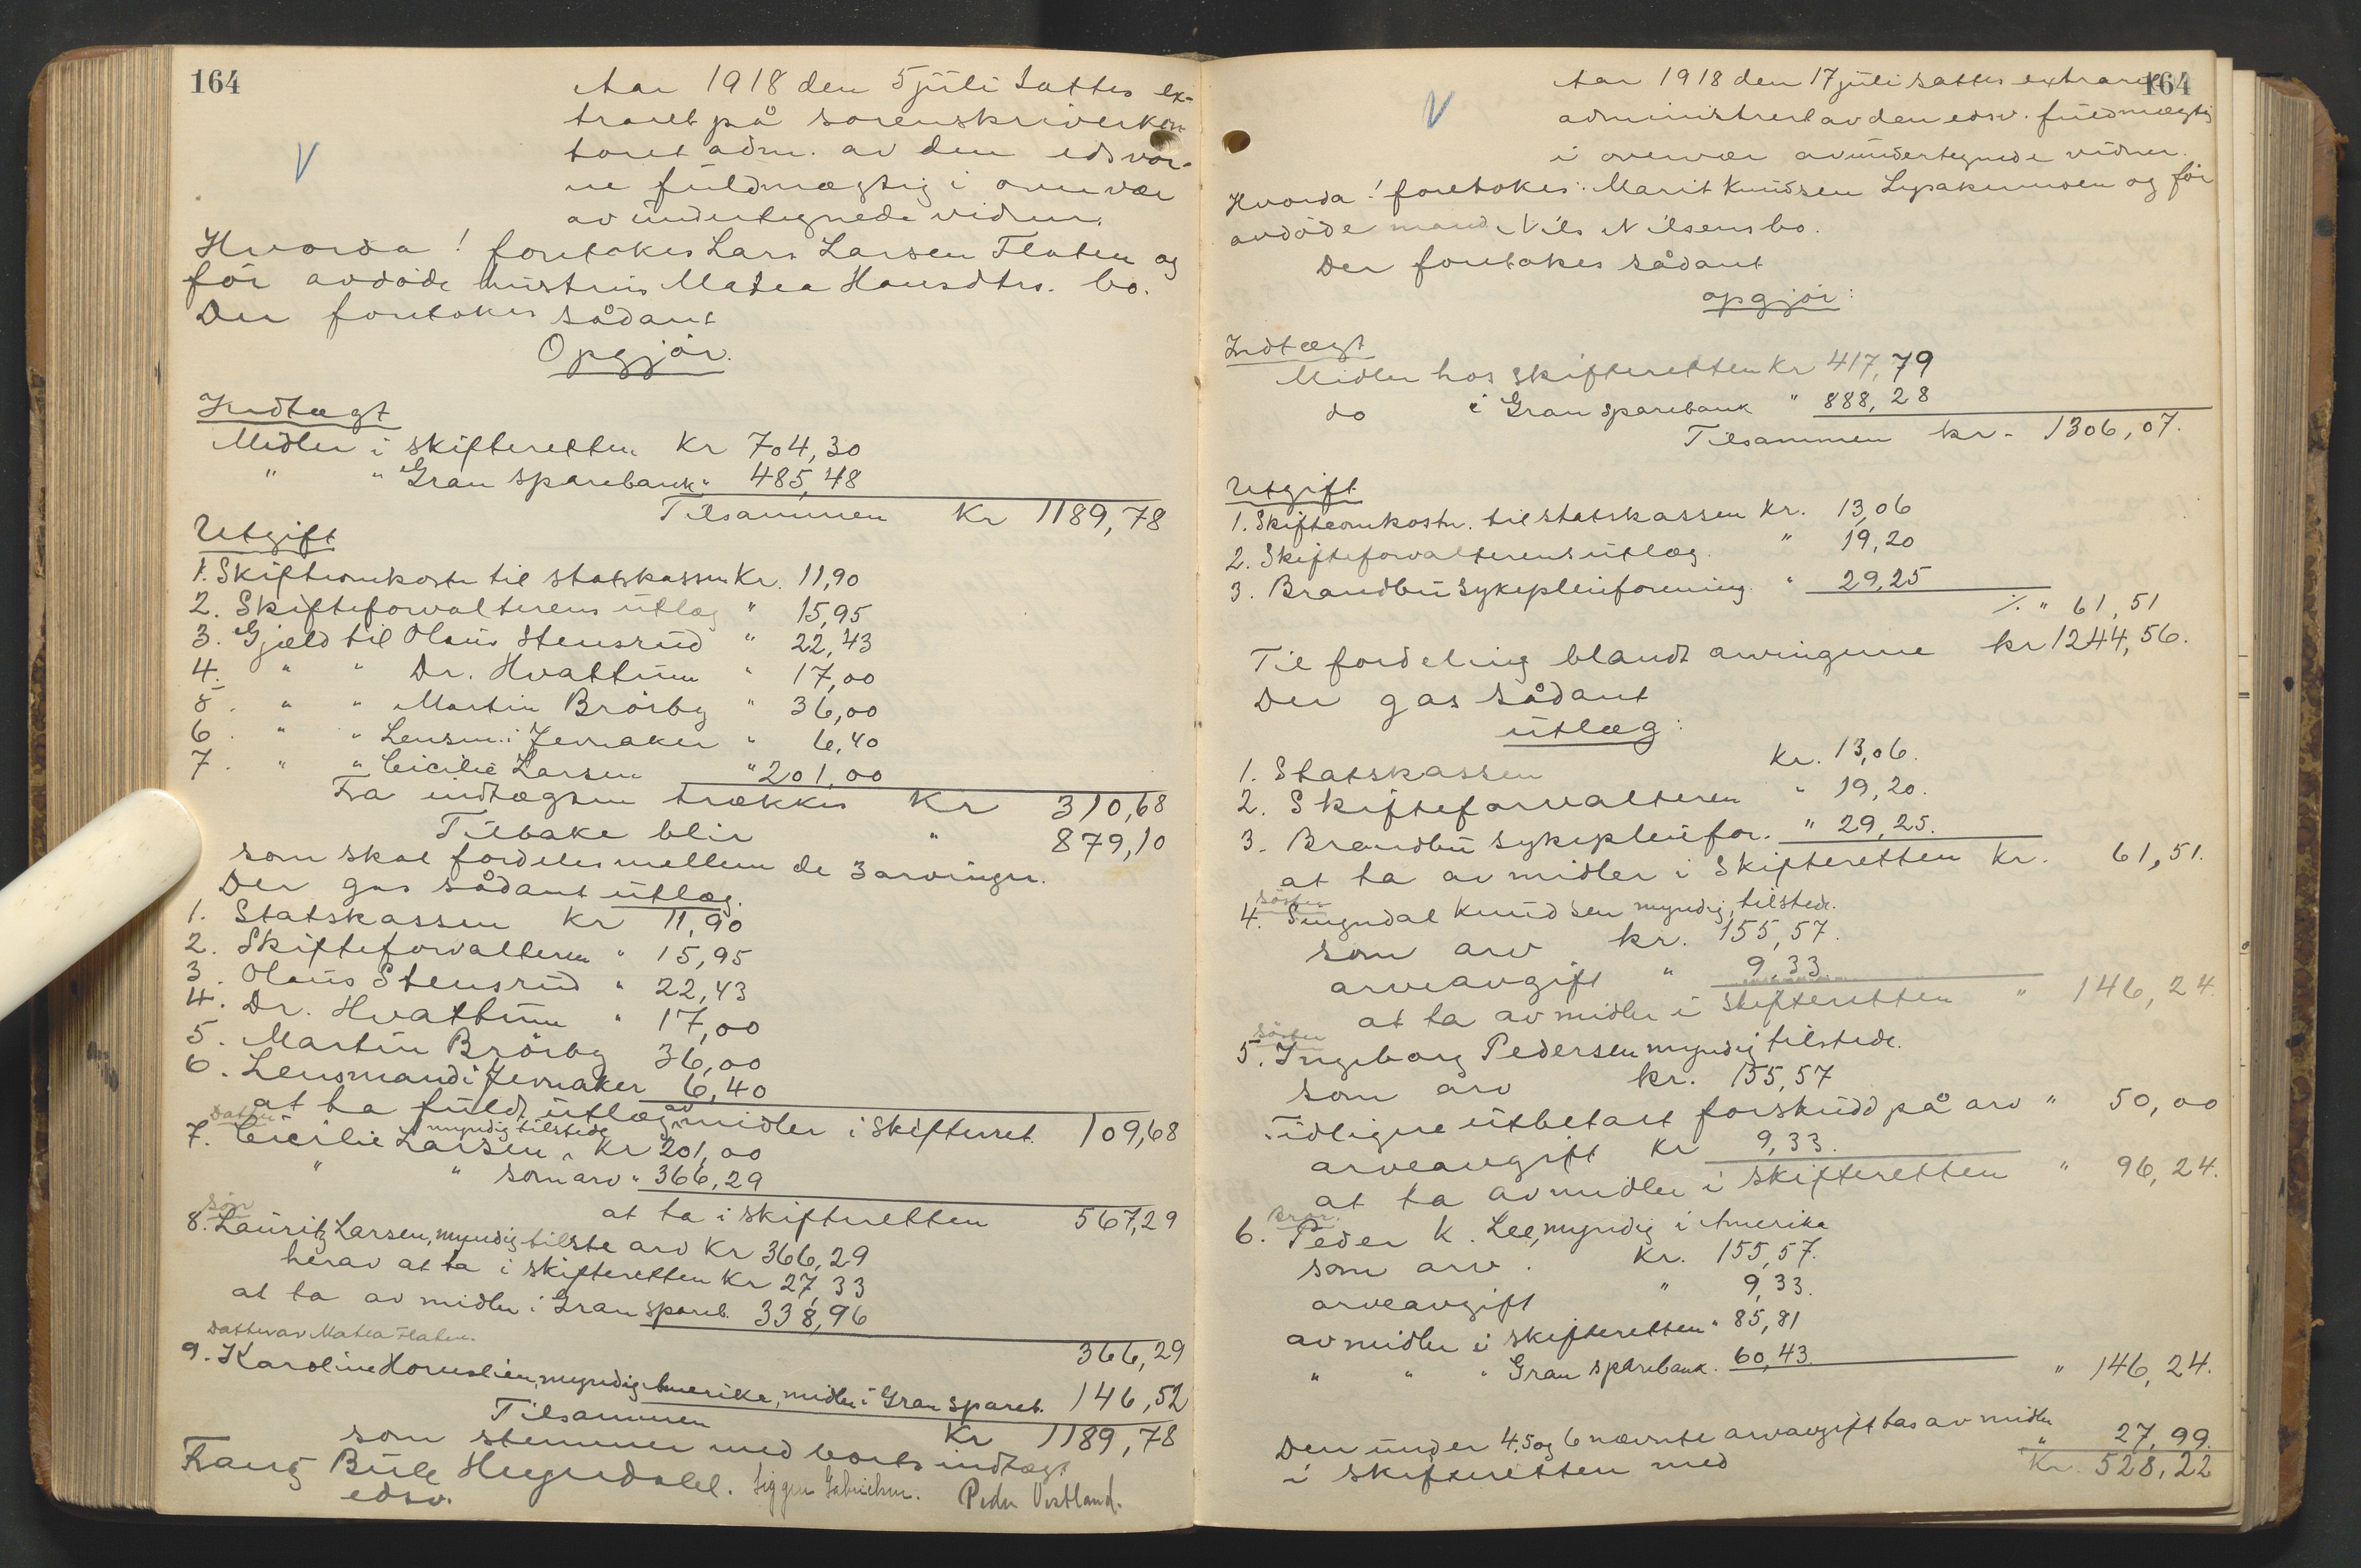 164
Aar 1918 den 5 juli sattes ex-
traret på sorenskriverkon
toret adm. av den edsvor-
ne fuldmægtig i overvær
av undertegnede vidner.
Hvorda! foretokes Lars Larsen Flaten og
før avdøde hustrus Matea Hansdtrs. bo.
Der foretokes sådant
Opgjør.
Indtægt
Midler i skifteretten Kr 704,30
" " Gran sparebank " 485,48
Tilsammen Kr 1189,78
Utgift
1. Skifteomkostn til statskassen Kr. 11,90
2. Skifteforvalterens utlæg " 15,95
3. Gjæld til Olaus Stensrud " 22,43
4. " " Dr. Hvattum " 17,00
5. " " Martin Brørby " 36,00
6. " " Lensm. i Jevnaker " 6,40
7. " " Cicilie Larsen " 201,00
Fra indtægten trækkes Kr 310,68
Tilbake blir " 879,10
som skal fordeles mellem de 3 arvinger.
Der gas sådant utlæg.
1. Statskassen Kr 11,90
2. Skifteforvalteren " 15,95
3. Olaus Stensrud " 22,43
4. Dr. Hvattum " 17,00
5. Martin Brørby 36,00
6. Lensmand i Jevnaker 6,40
at ta fuldt utlæg av midler i skifteret. 109,68
Datter
7. Cicilie Larsen, myndig tilstede Kr 201,00
" " som arv " 366,29
at ta i skifteretten 567,29
søn
8. Lauritz Larsen, myndig tilste arv Kr 366,29
herav at ta i skifteretten Kr 27,33
at ta av midler i Gran spareb. 338,96
366,29
Datter av Matea Flaten.
9. Karoline Hornslien, myndig Amerika, midler i Gran spareb. 146,52
Tilsammen Kr 1189,78
som stemmer med boets indtægt
Frantz Bule Hegndahl.
edsv.
Peder Vestland.
164
Aar 1918 den 17 juli sattes extraret
administrert av den edsv. fuldmægtig
i overvær av undertegnede vidner.
Hvorda! foretokes: Marit Knudsen Lysakermoen og før
avdøde mand Nils Nilsens bo.
Der foretokes sådant
opgjør:
Indtægt
Midler hos skifteretten Kr 417,79
do i Gran sparebank " 888,28
Tilsammen kr. 1306,07.
Utgift
1. Skifteomkostn. til statskassen Kr. 13,06
2. Skifteforvalterens utlæg. " 19,20
3. Brandbu Sykepleiforening. " 29,25
% " 61,51
Til fordeling blandt arvingerne kr 1244,56.
Der gas sådant
utlæg:
1. Statskassen Kr. 13,06.
2. Skifteforvalteren " 19,20.
3. Brandbu sykepleiefor. " 29,25.
at ta av midler i Skifteretten Kr. 61,51.
søster
4. Knudsen myndig, tilstede.
som arv kr. 155,57.
arveavgift " 9,33
at ta av midler i skifteretten " 146,24.
søster
5. Ingeborg Pedersen myndig tilstede.
som arv kr. 155,57
Tidligere utbetalt forskudd på arv " 50,00
arveavgift Kr 9,33.
at ta av midler i skifteretten " 96,24.
Bror.
6. Peder K. Lee, myndig i Amerika
som arv. Kr. 155,57.
arveavgift " 9,33.
av midler i skifteretten " 85,81
" " " Gran sparebank. 60,43.
" 146,24.
Den under 4.5 og 6 nævnte arveavgift tas av midler
i skifteretten med " 27,99.
Kr. 528,22